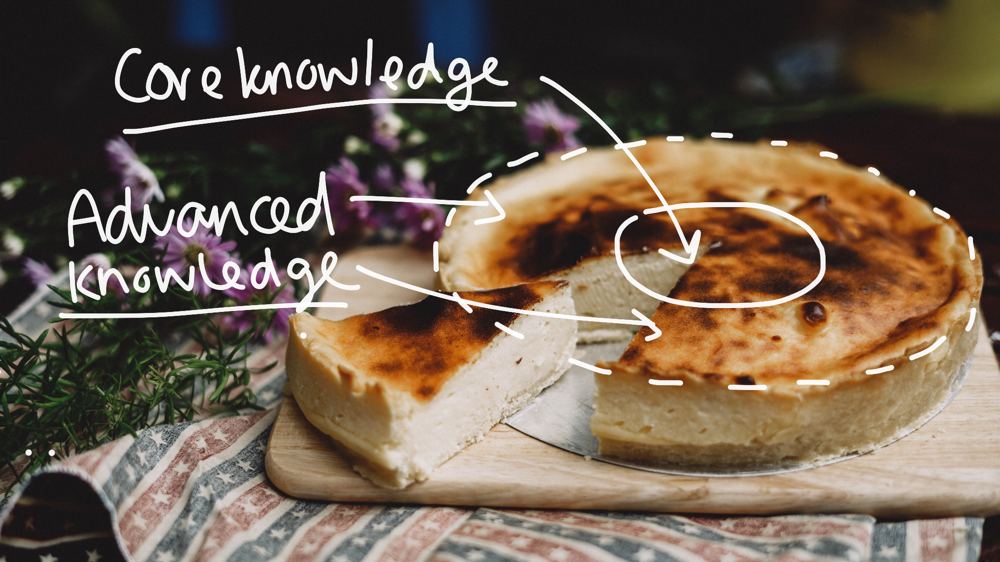 Core knowledge
Advanced
knowledge